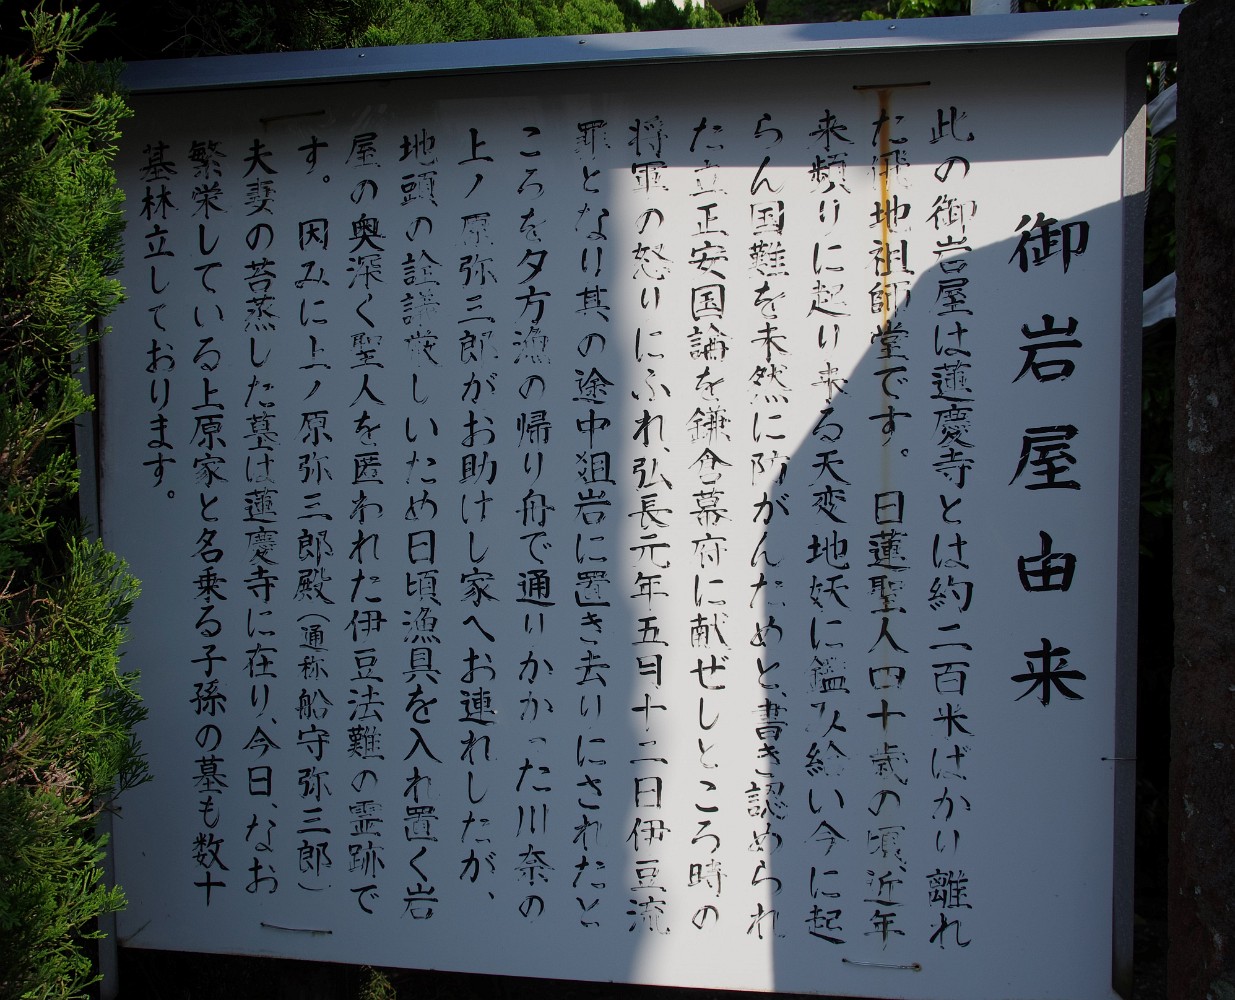 御岩屋由来
此の御岩屋は蓮慶寺とは約二百米ばかり離れ
た飛地祖師堂です。日蓮聖人四十歳の頃、近年
来頻りに起り来る天変地妖に鑑み給い今に起
らん国難を未然に防がんためと、書き認められ
た立正安国論を鎌倉幕府に献ぜしところ時の
将軍の怒りにふれ、弘長元年五月十二日伊豆流
罪となり其の途中俎岩に置き去りにされたと
ころを夕方漁の帰り舟で通りかかった川奈の
上ノ原弥三郎がお助けし家へお連れしたが、
地頭の詮議厳しいため日頃漁具を入れ置く岩
屋の奥深く聖人を匿われた伊豆法難の霊跡で
す。因みに上ノ原弥三郎殿（通称船守弥三郎）
夫妻の苔蒸した墓は蓮慶寺に在り、今日、なお
繁栄している上原家と名乗る子孫の墓も数十
基林立しております。